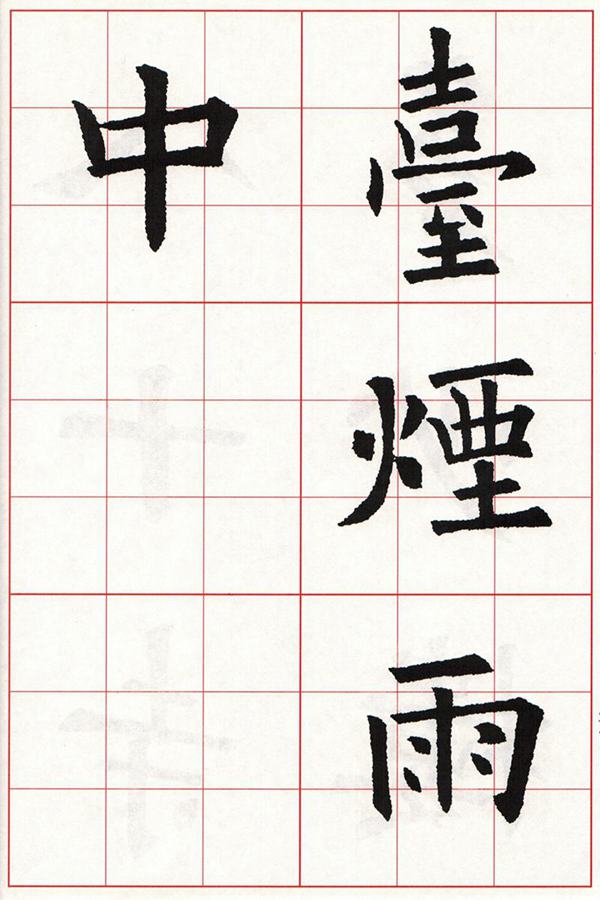 臺煙雨
中